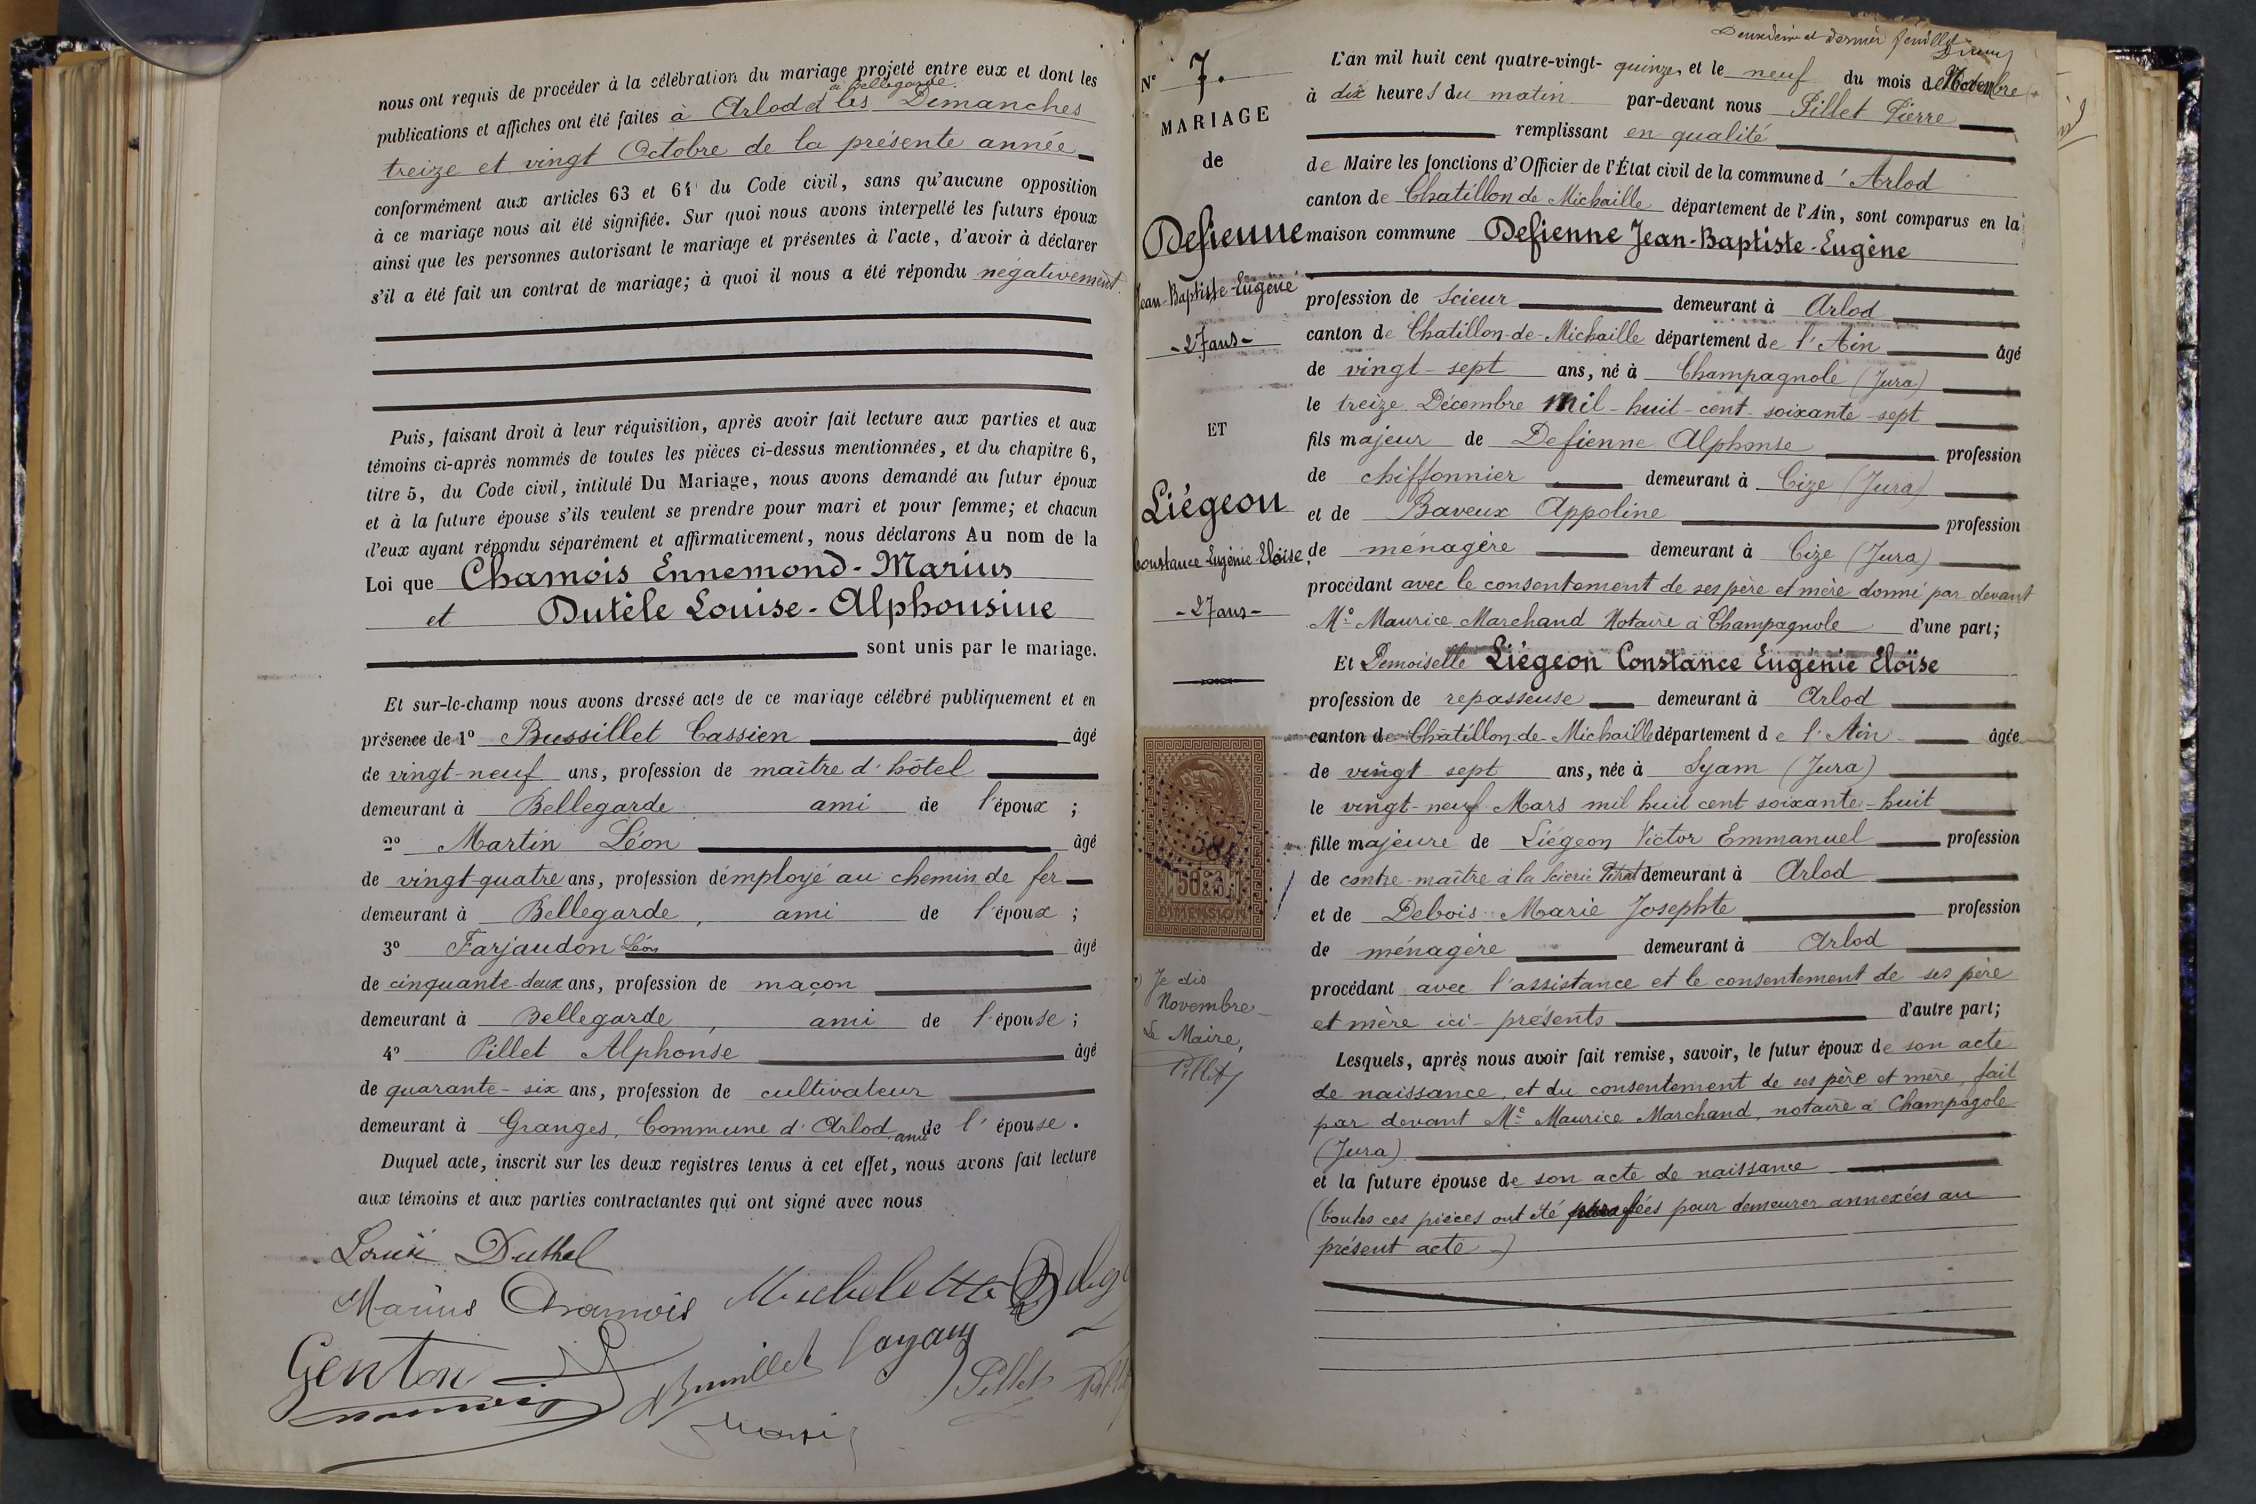 nous ont requis de procéder à la célébration du mariage projeté entre eux et dont les
à Bellegarde
publications et affiches ont été faites à Arlod et les Dimanches
treize et vingt Octobre de la présente année
conformément aux articles 63 et 64 du Code civil, sans qu'aucune opposition
à ce mariage nous ait été signifiée. Sur quoi nous avons interpellé les futurs époux
ainsi que les personnes autorisant le mariage et présentes à l'acte, d'avoir à déclarer
s'il a été fait un contrat de mariage; à quoi il nous a été répondu négativement.
Puis, faisant droit à leur réquisition, après avoir fait lecture aux parties et aux
témoins ci-après nommés de toutes les pièces ci-dessus mentionnées, et du chapitre 6,
titre 5, du Code civil, intitulé Du Mariage, nous avons demandé au futur époux
et à la future épouse s'ils veulent se prendre pour mari et pour femme; et chacun
d'eux ayant répondu séparément et affirmativement, nous déclarons Au nom de la
Loi que Chamois Ennemond-Marius
et Dutèle Louise-Alphonsine
sont unis par le mariage.
Et sur-le-champ nous avons dressé acte de ce mariage célébré publiquement et en
présence de 1º Bussillet Cassien âgé
de vingt-neuf ans, profession de maître d'hôtel
demeurant à Bellegarde ami de l'époux ;
2º Martin Léon âgé
de vingt-quatre ans, profession d'employé au chemin de fer
demeurant à Bellegarde, ami de l'époux ;
3º Farjaudon Léon âgé
de cinquante-deux ans, profession de maçon
demeurant à Bellegarde, ami de l'épouse ;
4º Pillet Alphonse âgé
de quarante-six ans, profession de cultivateur
demeurant à Granges, Commune d'Arlod ami de l'épouse.
Duquel acte, inscrit sur les deux registres tenus à cet effet, nous avons fait lecture
aux témoins et aux parties contractantes qui ont signé avec nous
Louise Duthel
Marius Chamois
Genton
Pillet
Deuxième et dernier feuillet
Nº 7.
MARIAGE
de
Defienne
Jean-Baptiste-Eugène
-27 ans-
ET
Liégeon
Constance-Eugénie-Eloïse.
-27 ans-
584
50c.
DIMENSION
Je dis
Novembre
Le Maire,
Pillet
L'an mil huit cent quatre-vingt-quinze, et le neuf du mois de Novembre
à dix heures du matin par-devant nous Pillet Pierre
remplissant en qualité
de Maire les fonctions d'Officier de l'État civil de la commune d'Arlod
canton de Chatillon de Michaille département de l'Ain, sont comparus en la
maison commune Defienne Jean-Baptiste-Eugène
profession de scieur demeurant à Arlod
canton de Chatillon-de-Michaille département de l'Ain âgé
de vingt-sept ans, né à Champagnole (Jura)
le treize Décembre mil-huit-cent-soixante-sept
fils majeur de Defienne Alphonse profession
de chiffonnier demeurant à Cize (Jura)
et de Baveux Appoline profession
de ménagère demeurant à Cize (Jura)
procédant avec le consentement de ses père et mère donné par devant
Mº Maurice Marchand Notaire à Champagnole d'une part;
Et Demoiselle Liégeon Constance Eugénie Eloïse
profession de repasseuse demeurant à Arlod
canton de Châtillon-de-Michaille département de l'Ain âgée
de vingt sept ans, née à Syam (Jura)
le vingt-neuf Mars mil huit cent soixante-huit
fille majeure de Liégeon Victor Emmanuel profession
de contre-maître à la Scierie demeurant à Arlod
et de Debois Marie Josephte profession
de ménagère demeurant à Arlod
procédant avec l'assistance et le consentement de ses père
et mère ici-présents d'autre part;
Lesquels, après nous avoir fait remise, savoir, le futur époux de son acte
de naissance, et du consentement de ses père et mère, fait
par devant Mº Maurice Marchand, notaire à Champagole
(Jura)
et la future épouse de son acte de naissance
(toutes ces pièces ont été parafées pour demeurer annexées au
présent acte)